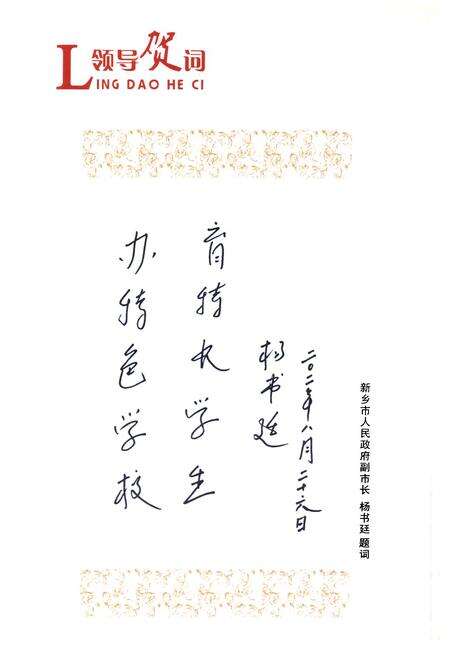 领导贺词
LING DAO HE CI
办特色学校
育特长学生
杨书廷
八月二十六日
新乡市人民政府副市长 杨书廷 题词